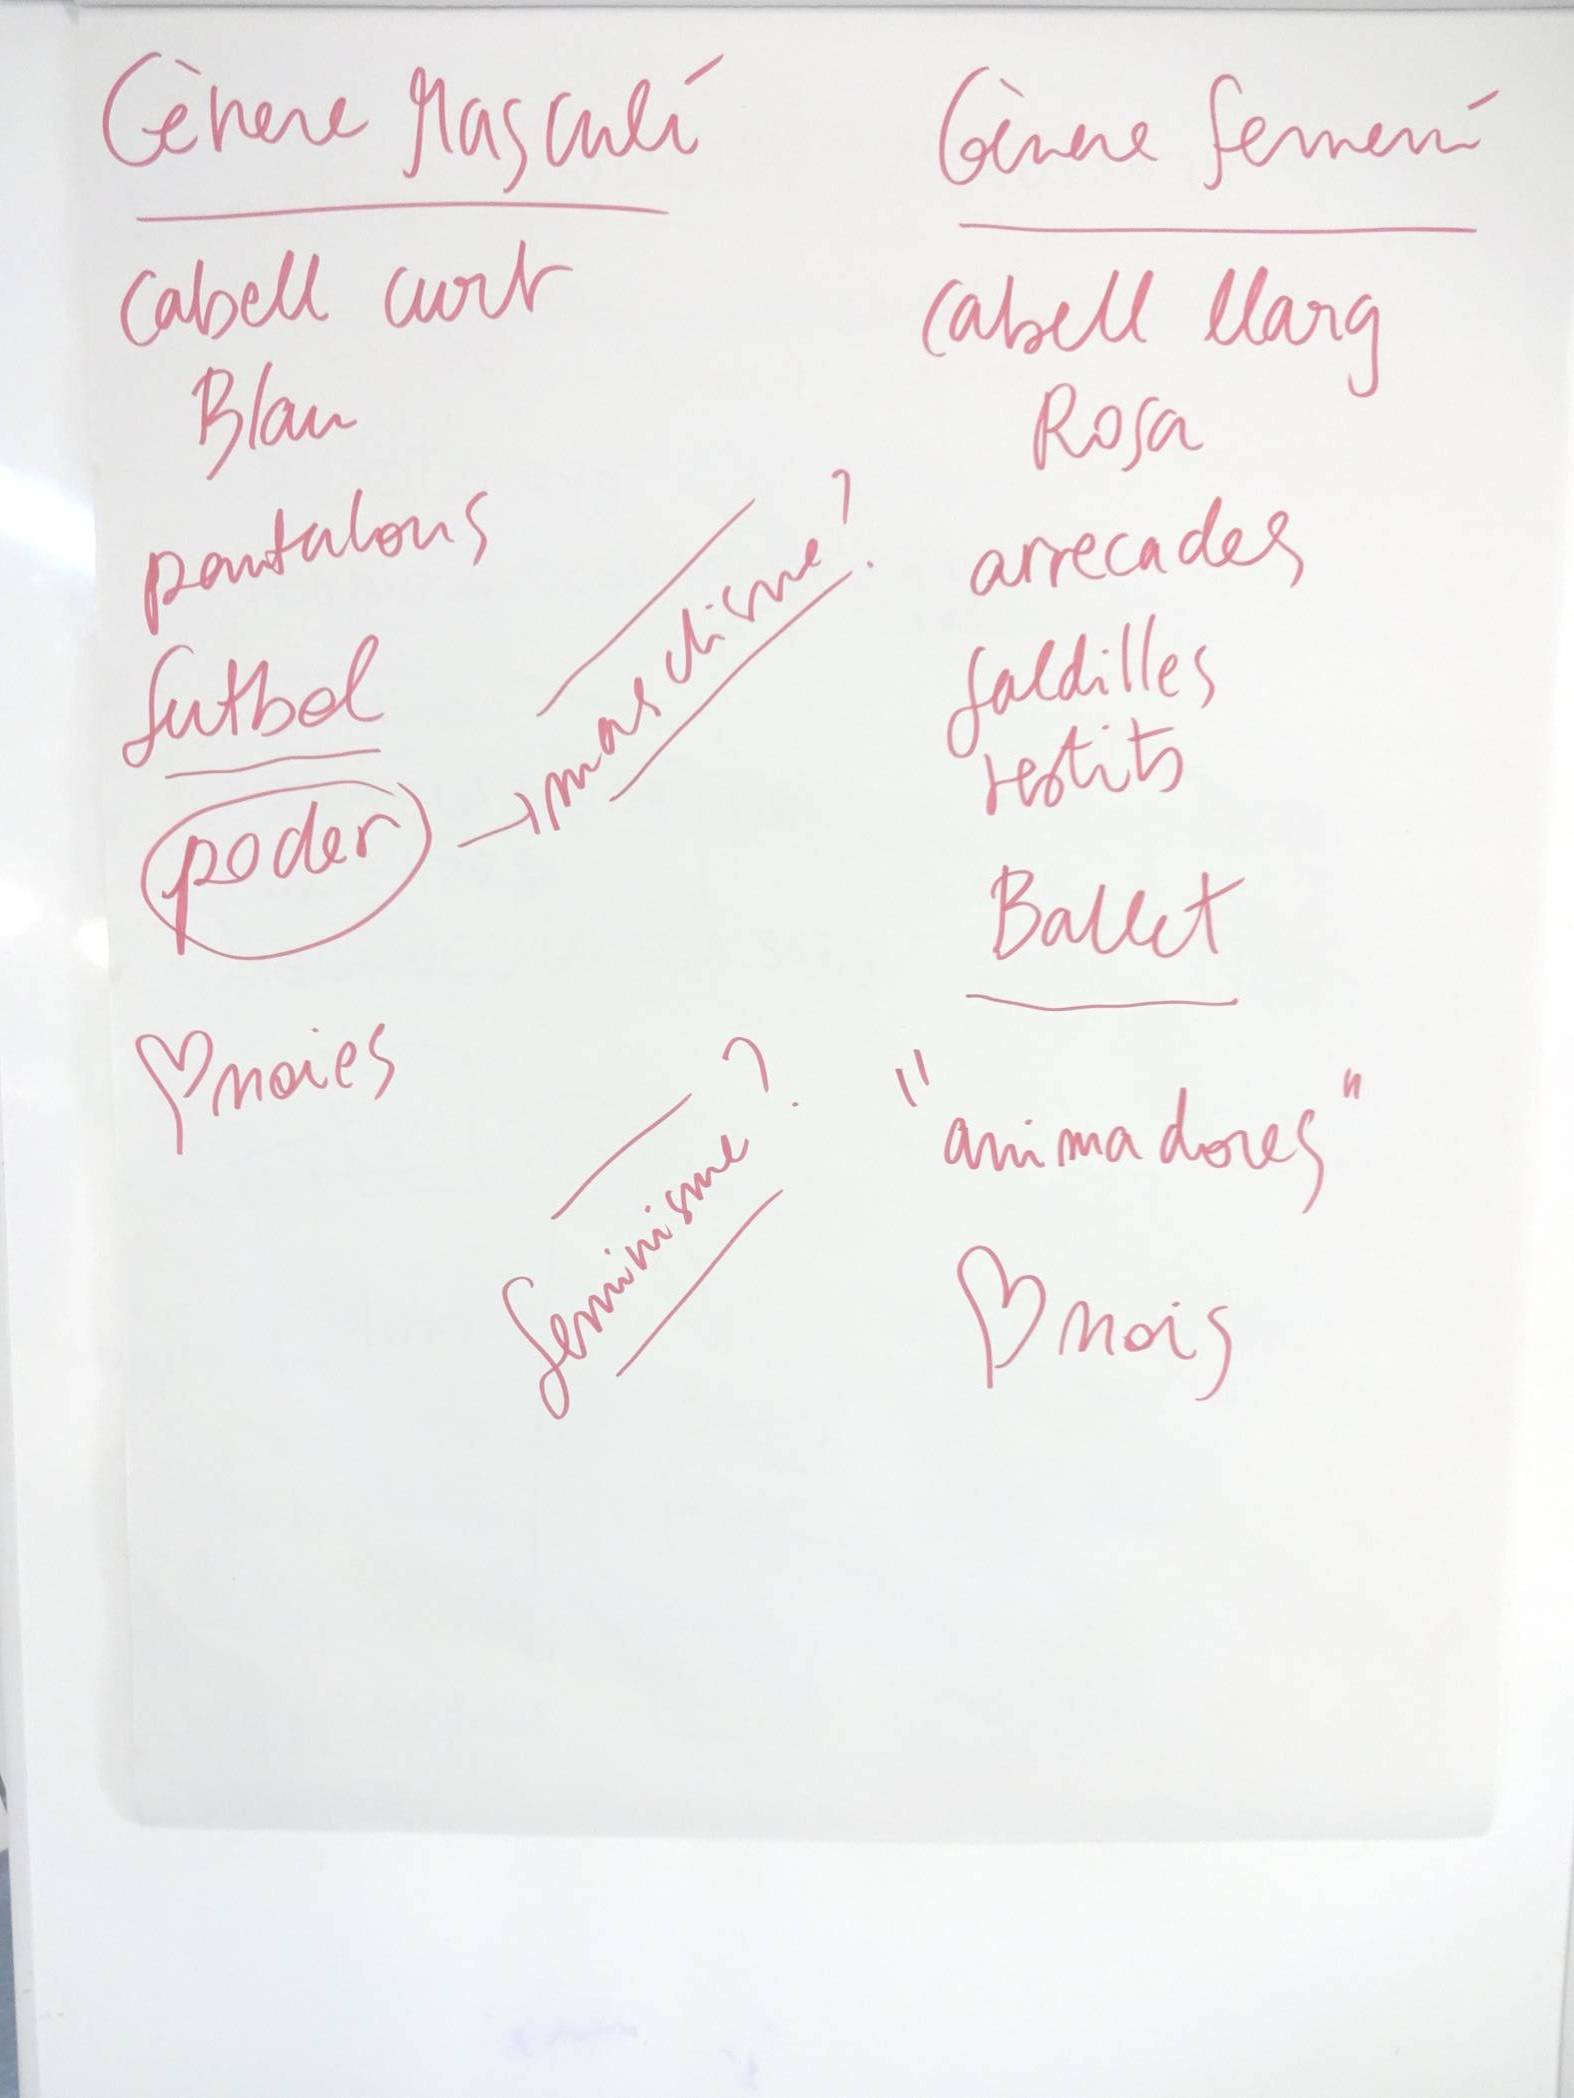 Gènere Masculí
cabell curt
Blau
pantalons
futbol
poder → masclisme?
♡ noies
feminisme?
Gènere femení
cabell llarg
Rosa
arrecades
faldilles
vestits
Ballet
"animadores"
♡ nois